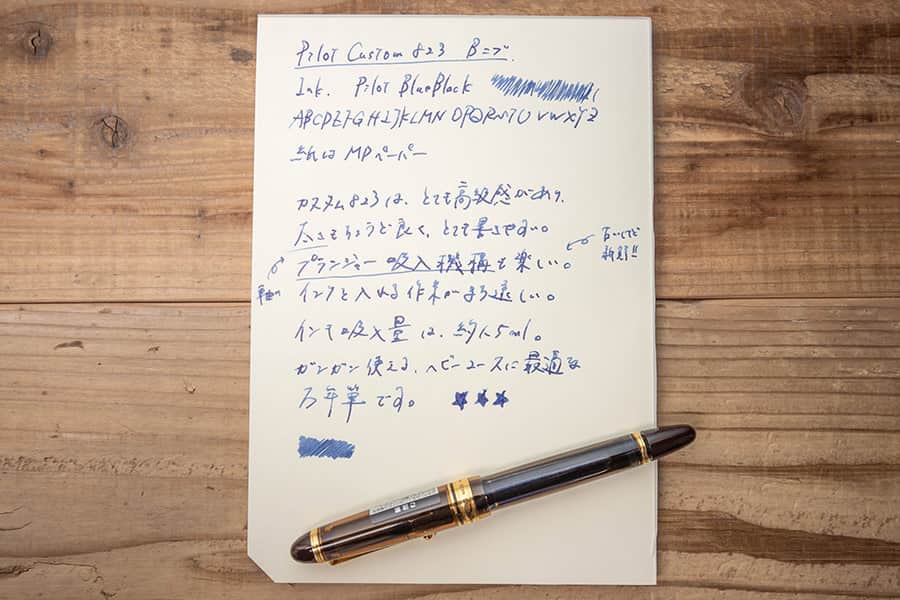 Pilot Custom 823 Bニブ.
Ink. Pilot BlueBlack
ABCDEFGHIJKLMN OPQRSTUVWXYZ
紙はMPペーパー
カスタム823は、とても高級感があり、
太さもちょうど良く、とても書きやすい。
プランジャー吸入機構も楽しい。
インクを入れる作業が楽しい。
インク吸入量は、約1.5ml。
ガンガン使える、ヘビーユースに最適な
万年筆です。